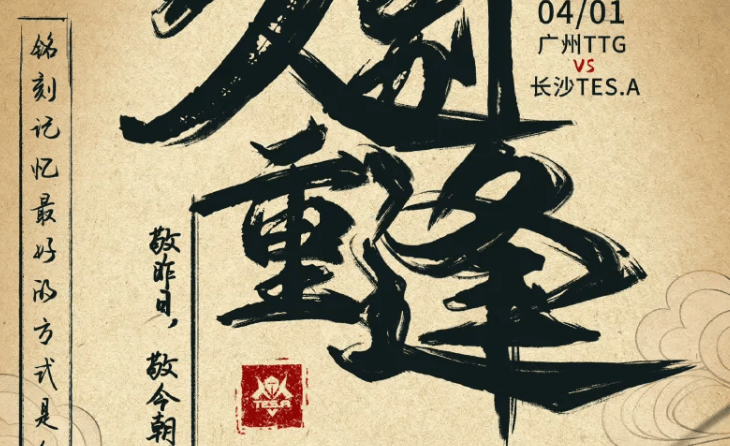 04/01
广州TTG
VS
长沙TES.A
久别
重逢
铭刻记忆最好的方式是
敬昨日，敬今朝
TES.A